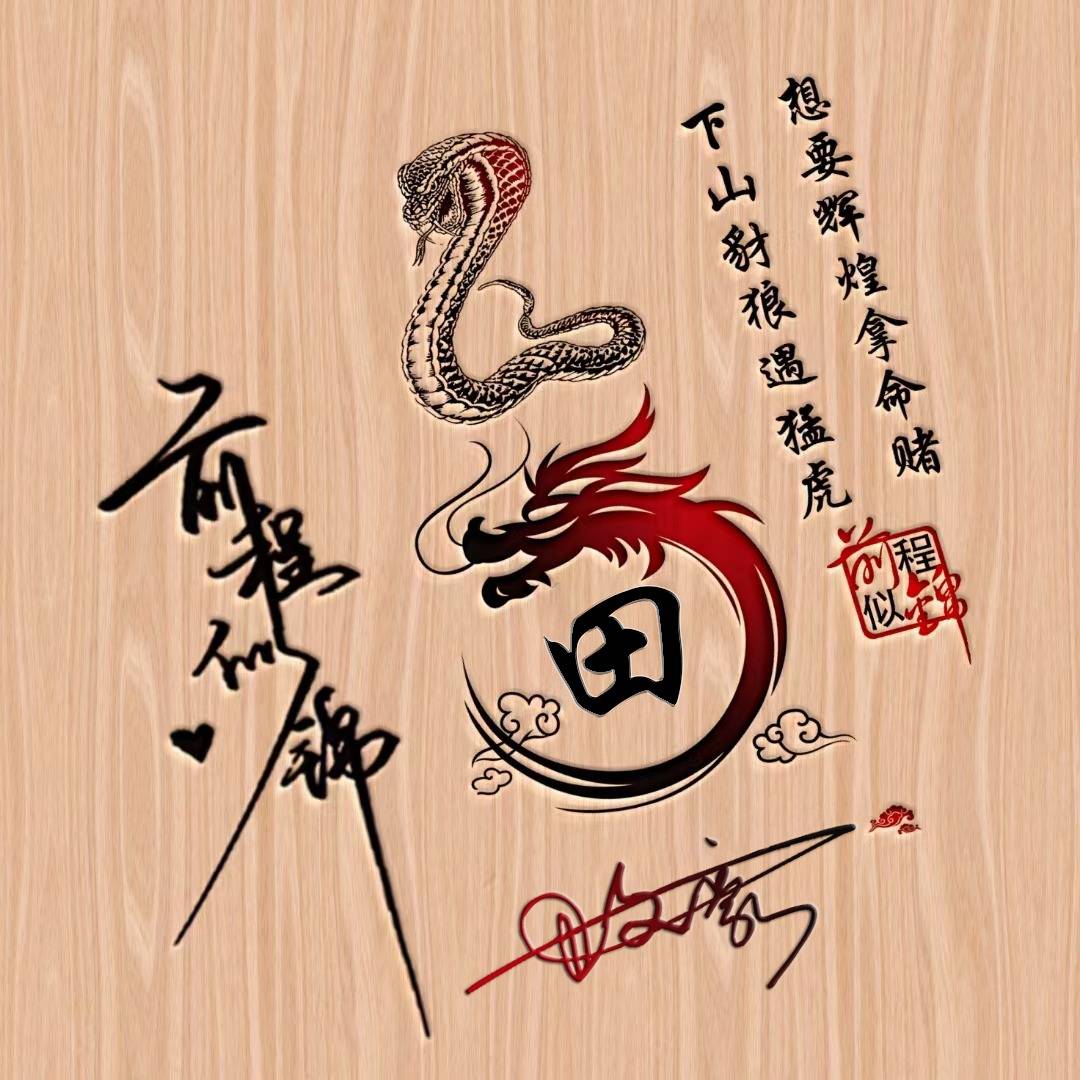 想要辉煌拿命赌
下山豺狼遇猛虎
前程似锦
田
前程似锦